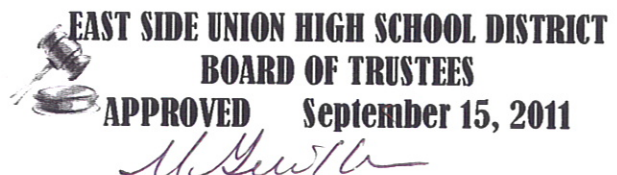 EAST SIDE UNION HIGH SCHOOL DISTRICT
BOARD OF TRUSTEES
APPROVED September 15, 2011